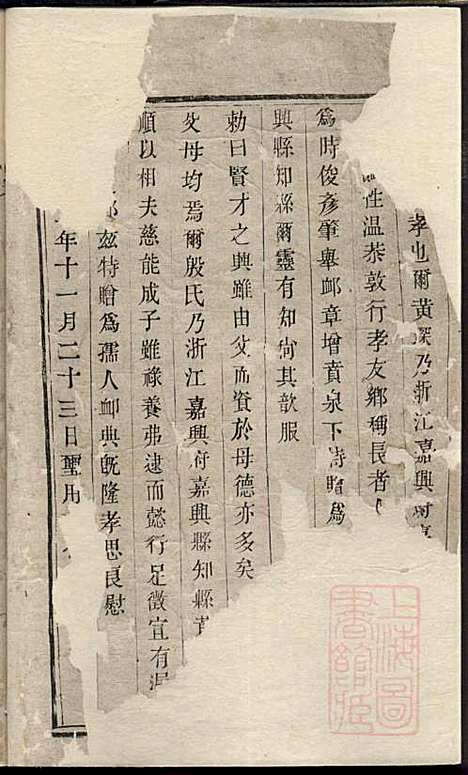 孝也爾黃深乃浙江嘉興府
性温恭敦行孝友鄉稱長者
爲時俊彦肇舉邺章增賁泉下特贈爲
興縣知縣爾靈有知尙其歆服
勑曰賢才之興雖由父而資於母德亦多矣
父母均焉爾殷氏乃浙江嘉興府嘉興縣知縣黃
順以相夫慈能成子雖祿養弗逮而懿行足徵宜有
兹特贈爲孺人邺典旣隆孝思良慰
年十一月二十三日璽用
上海圖書館藏